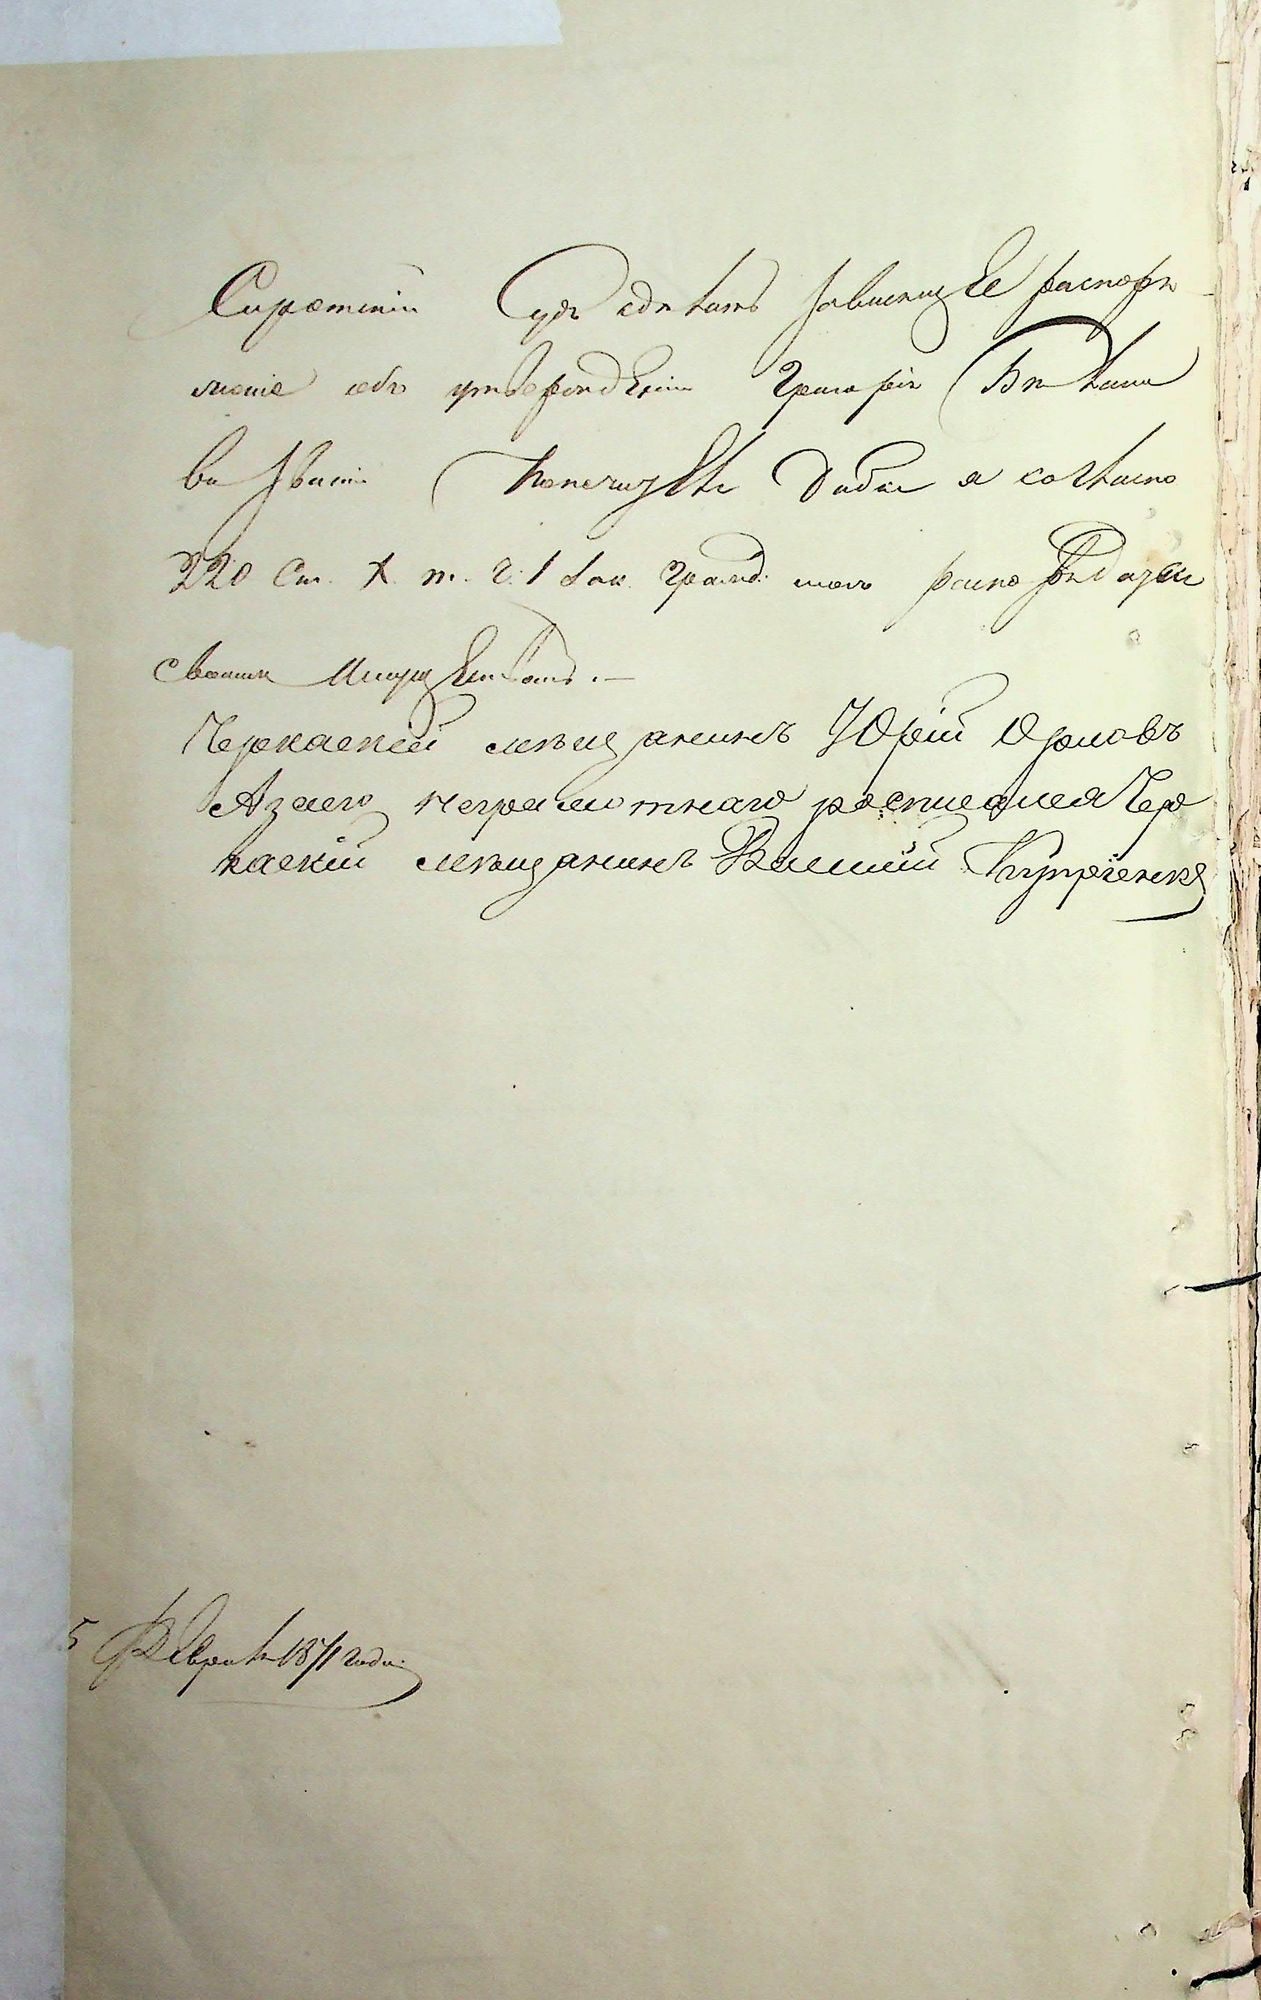 Сиротскій Судъ сдѣлать зависящее распоря
женіе объ утвержденіи Григорія Бѣлаша
въ званіи Попечителя дабы я согласно
220 Ст. X т. ч. 1 Зак. Гражд. могъ распоряжаться
своимъ имуществомъ.—
Черкаскій мѣщанинъ Юрій Орловъ
Азаего неграмотнаго росписался Чер
каскій мѣщанинъ Василій Купріенко
5 Февраля 1871 года.